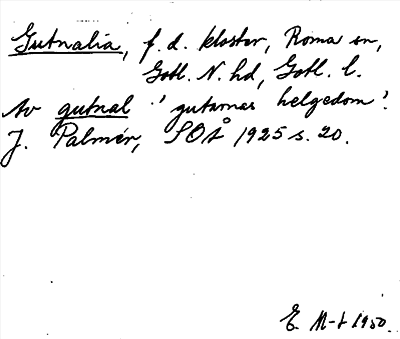 Gutnalia, f. d. kloster, Roma sn,
Gotl. N. hd, Gotl. l.
Av gutnal 'gutarnas helgedom'.
J. Palmér, SOÅ 1925 s. 20.
E. M-t 1950.